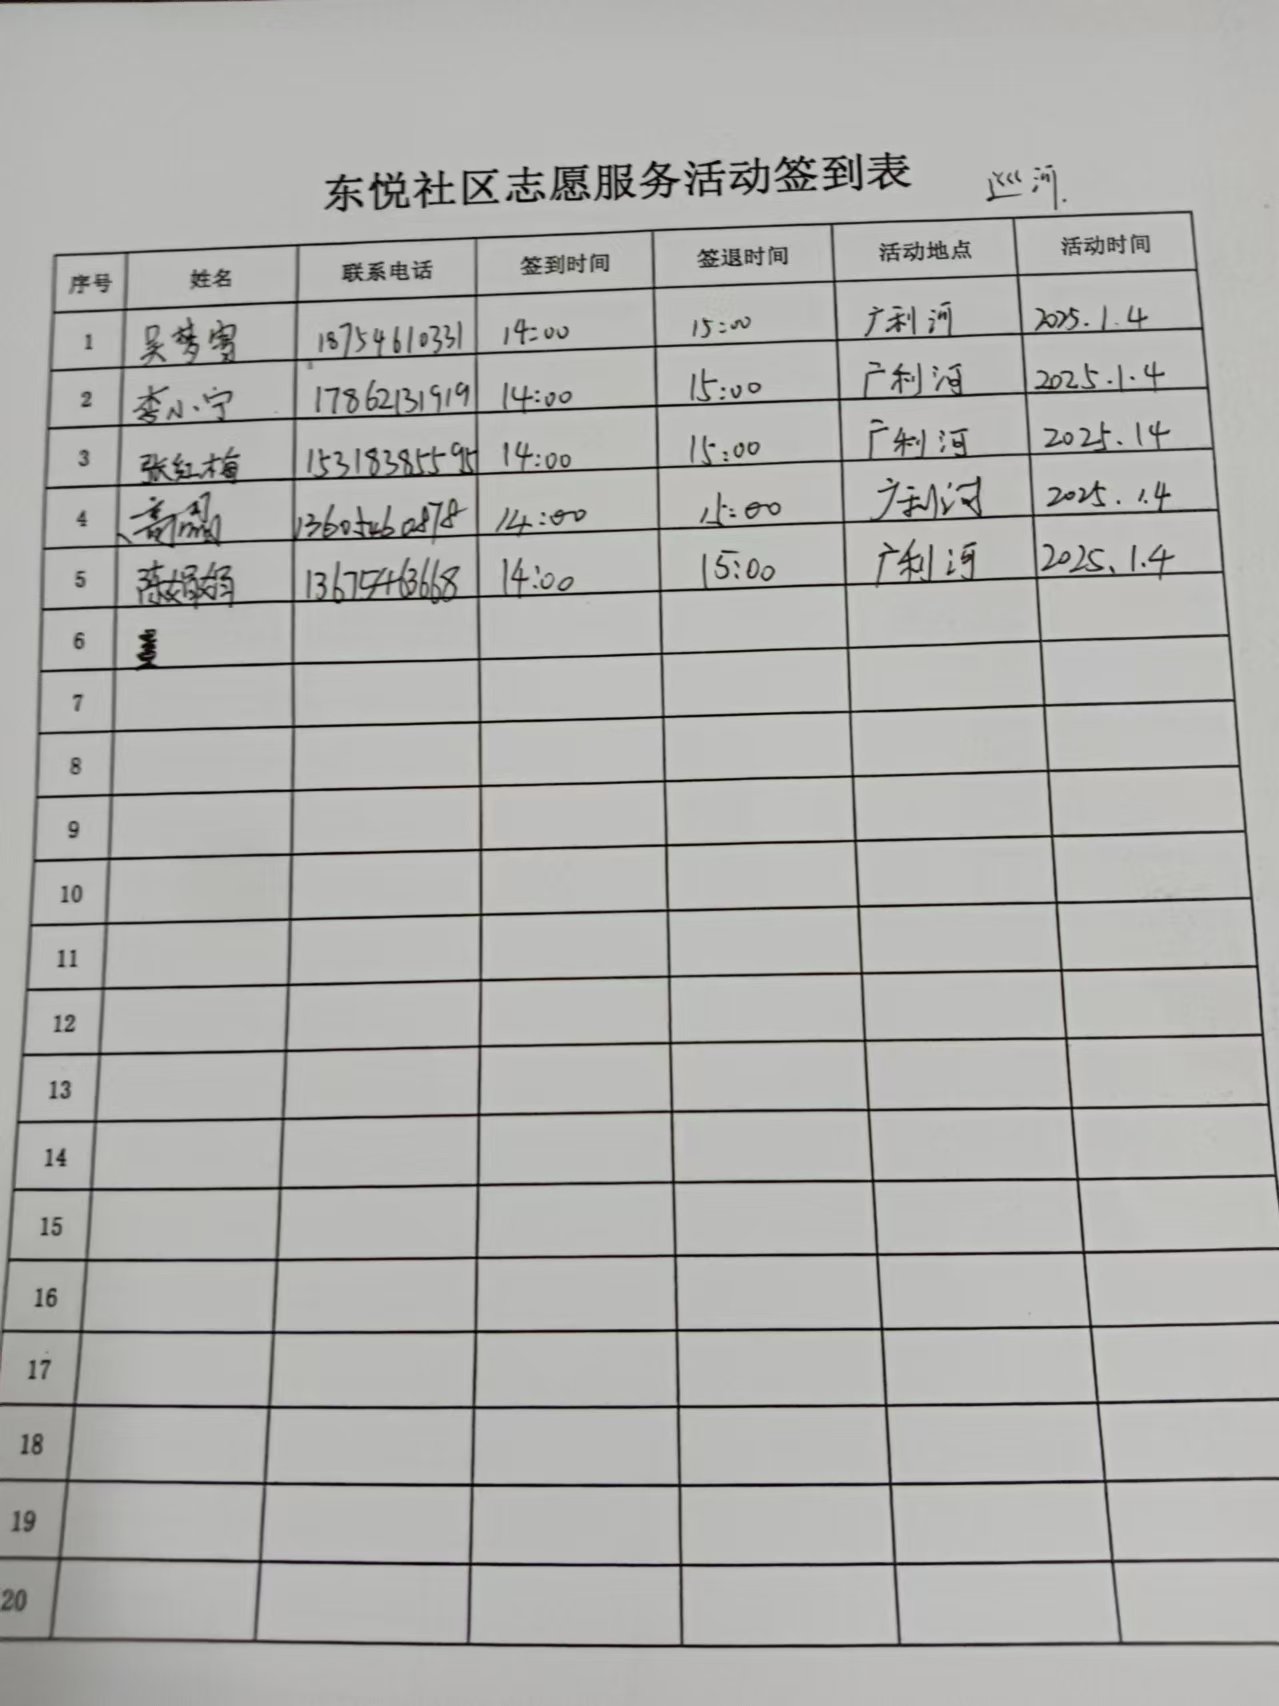 东悦社区志愿服务活动签到表 巡河.
序号 姓名 联系电话 签到时间 签退时间 活动地点 活动时间
1 吴梦雪 18754610331 14:00 15:00 广利河 2025.1.4
2 李小宁 17862131919 14:00 15:00 广利河 2025.1.4
3 张红梅 15318385595 14:00 15:00 广利河 2025.14
4 13605460878 14:00 15:00 广利河 2025.1.4
5 陈娟娟 13675463668 14:00 15:00 广利河 2025.1.4
6
7
8
9
10
11
12
13
14
15
16
17
18
19
20